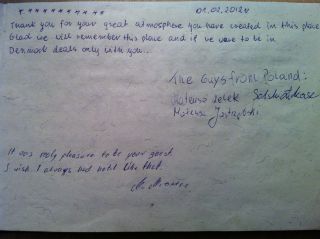 01.02.2012r
Thank you for your great atmosphere you have created in this place
Glad we will remember this place and if we have to be in
Denmark deals only with you...
The Guys from Poland:
Mateusz
Mateusz
It was really pleasure to be your guest.
I wish I always had hotel like that.
M.